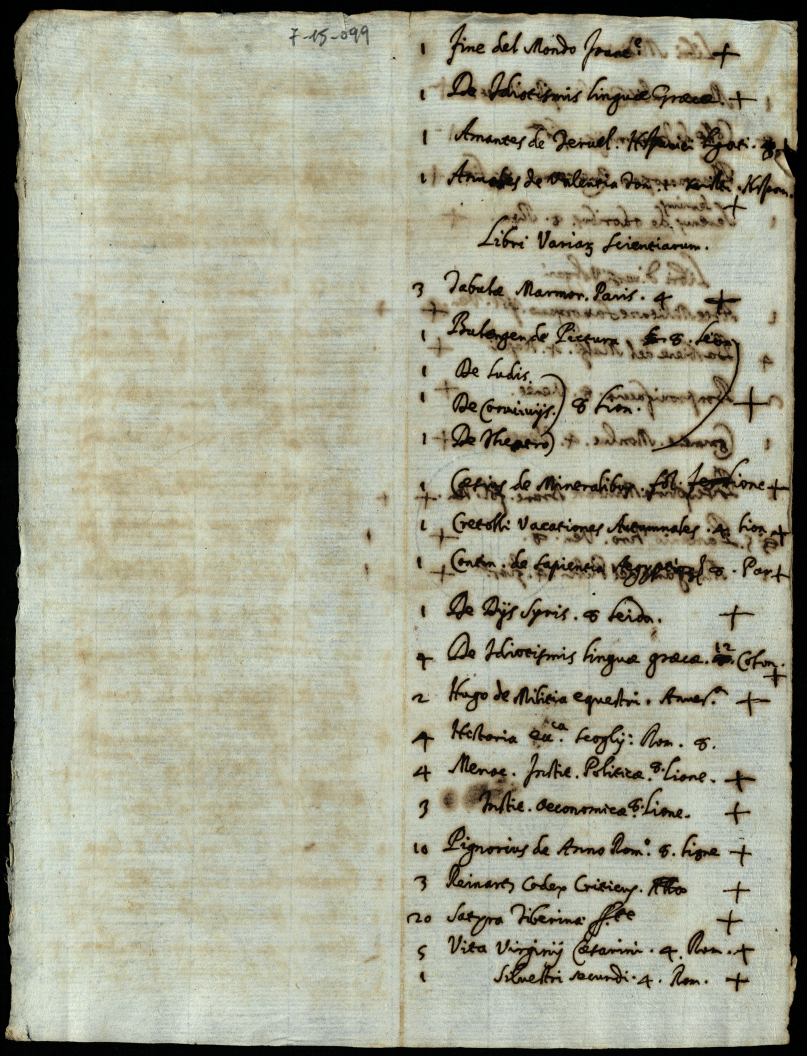 7-15-099
1 Fine del Mondo +
1 De Idiotismis linguæ Græcæ. +
1 Amantes de Teruel.
1 Annales de Valencia
+
Libri Variar. Scientiarum.
3 Tabulæ Marmor. Paris. 4 +
1 Buleger de Pictura 8. Leon
1 De Ludis.
1 De Convivijs. 8 Lion. +
1 De Theatro
1 Cæsius de Mineralibus. fol. Lione +
1 Cresolli Vacationes Autumnales. 4. Lion +
1 de Sapientia Aegyptior. 8. Par +
1 De Dijs Syris. 8 Leida. +
4 De Idiotismis linguæ græcæ. 12 Colon.
+
2 Hugo de Militia equestri. Anver.ª +
4 Historia Rom. 8.
4 Menoc. Instit. Politicæ. 8. Lione. +
3 Instit. oeconomicæ 8. Lione. +
10 Pignorius de Anno Rom.º 8. Ligne +
3 Reinarts Codex Criticus. +
20 Satyra Tiberina +
5 Vita Virginij Cæsarini. 4. Rom. +
1 Silvestri secundi. 4. Rom. +